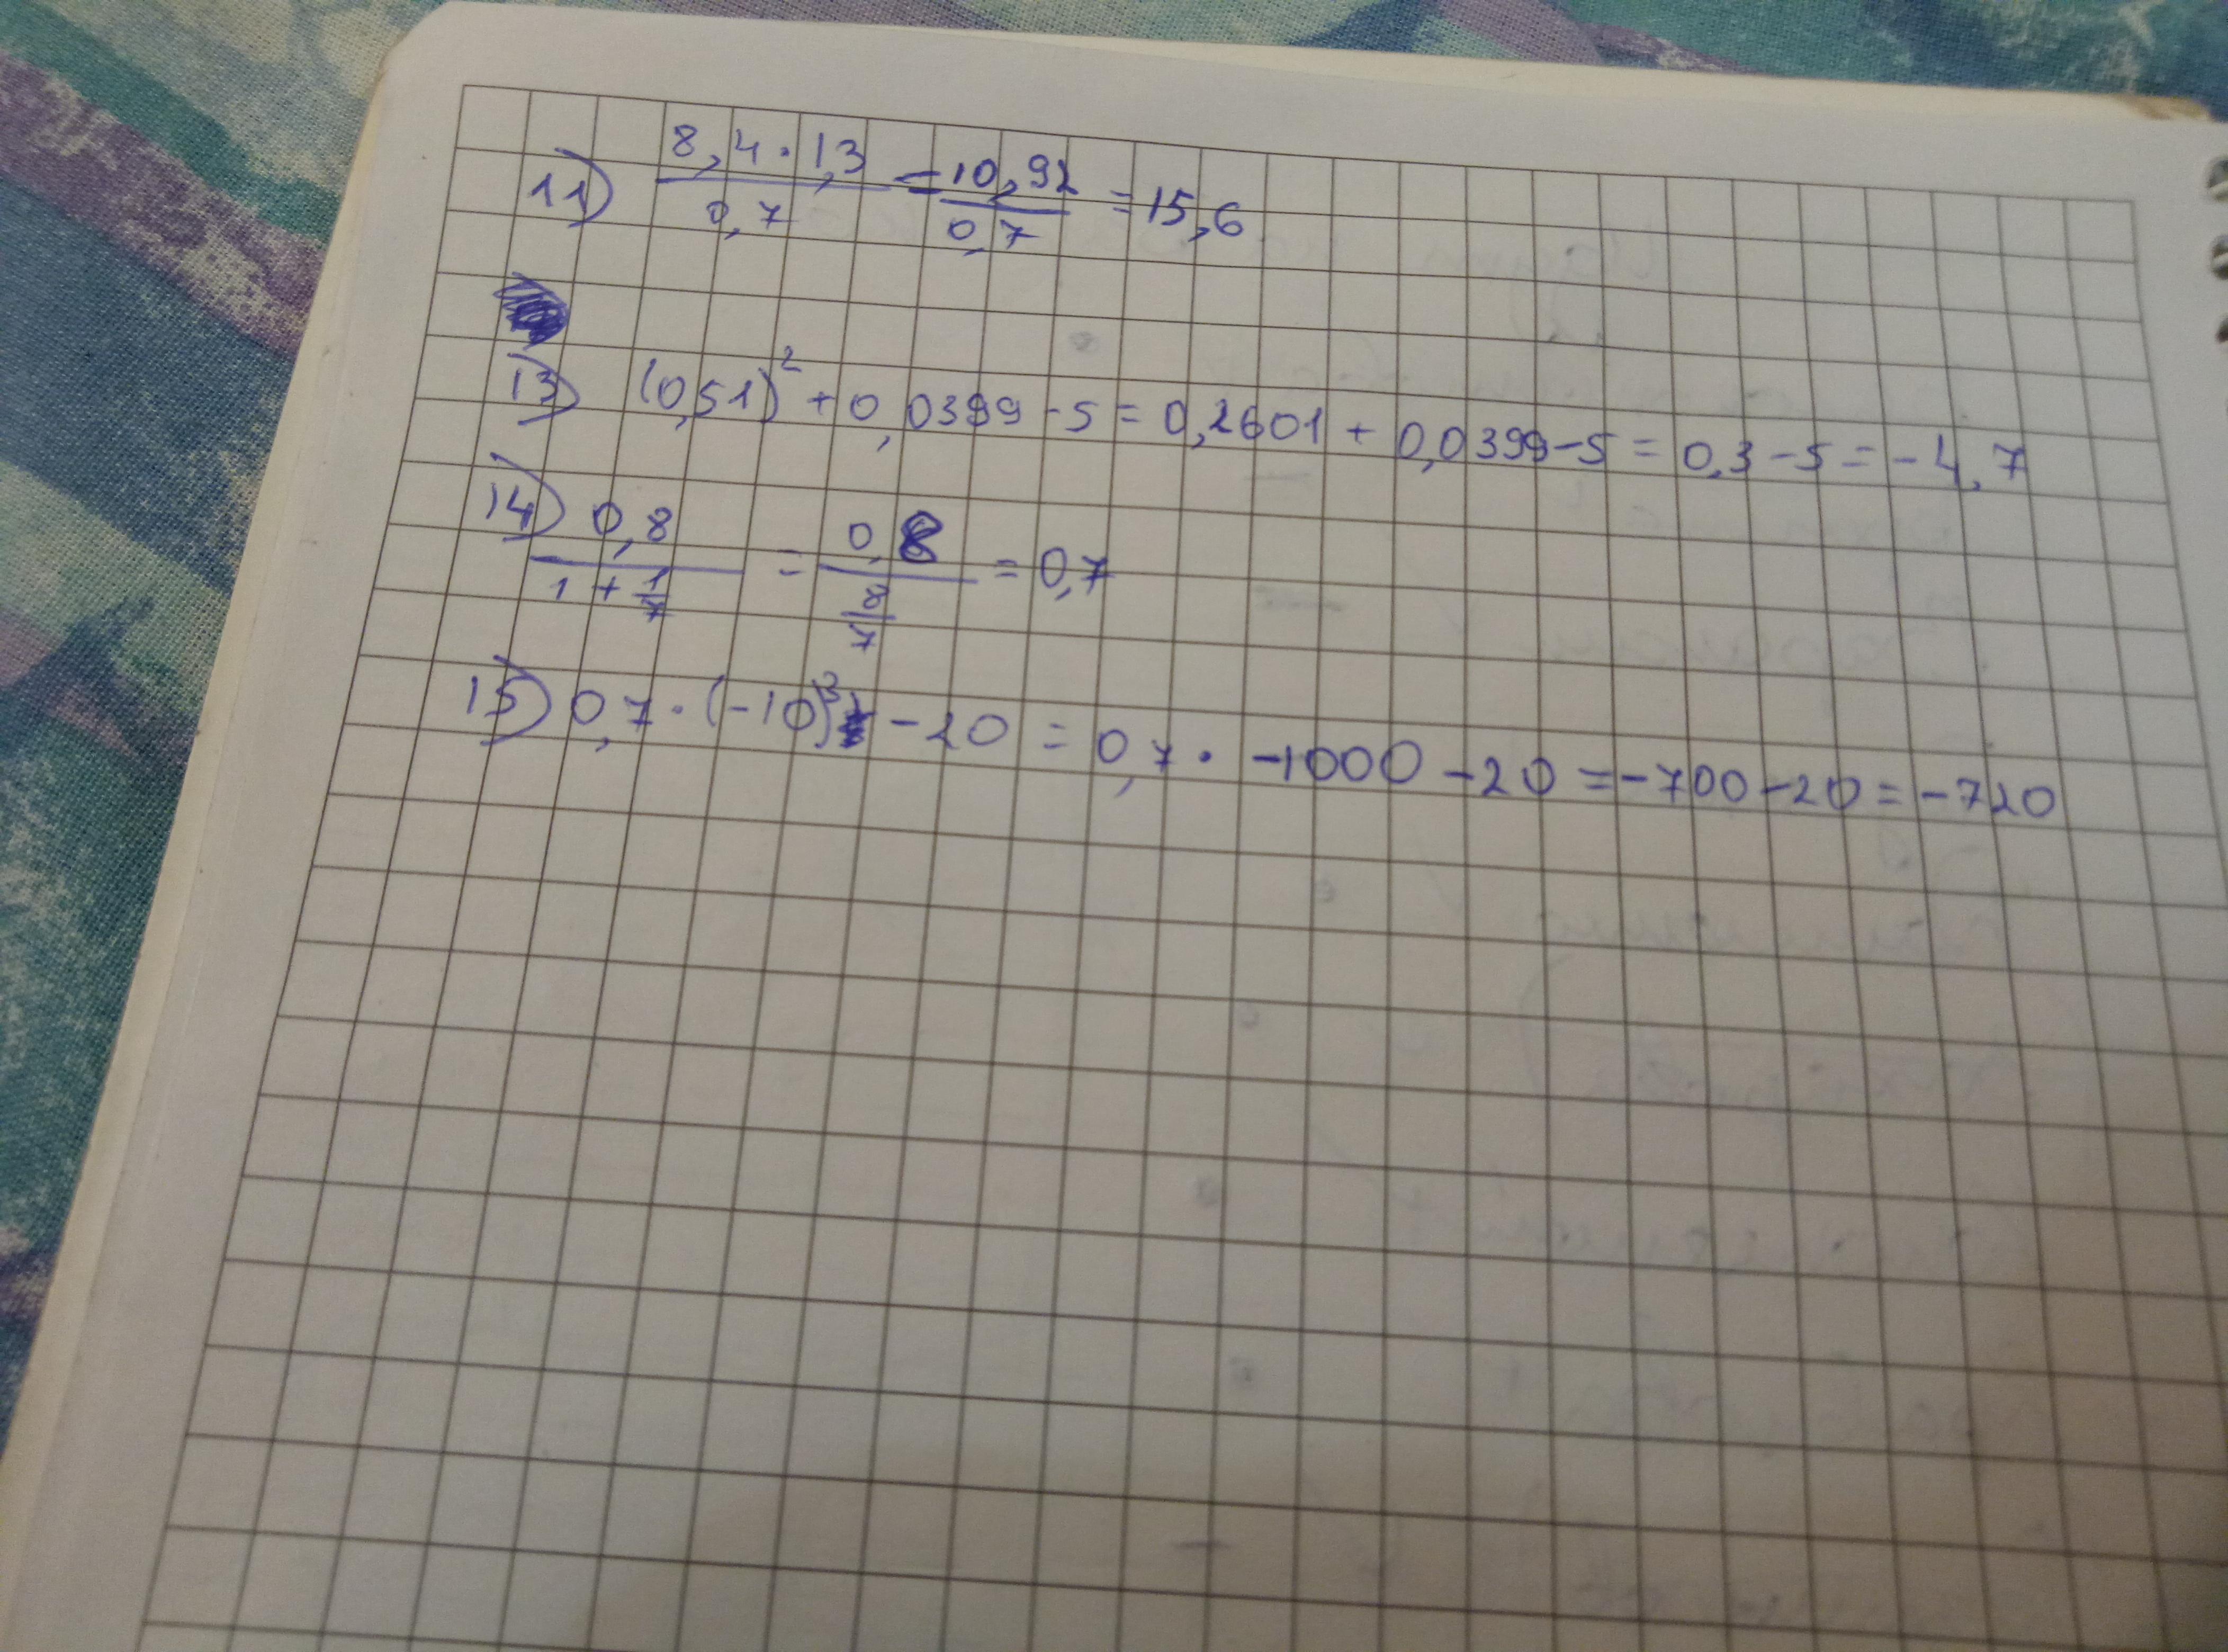 11) 8,4·1,3/0,7 = 10,92/0,7 = 15,6
13) (0,51)² + 0,0399 - 5 = 0,2601 + 0,0399 - 5 = 0,3 - 5 = - 4,7
14) 0,8/(1 + 1/7) = 0,8/(8/7) = 0,7
15) 0,7 · (-10)³ - 20 = 0,7 · -1000 - 20 = -700 - 20 = -720